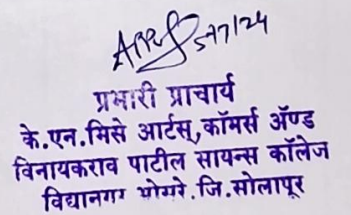 577/24
प्रभारी प्राचार्य
के.एन.भिसे आर्टस्,कॉमर्स ॲण्ड
विनायकराव पाटील सायन्स कॉलेज
विद्यानगर भोसरे.जि.सोलापूर